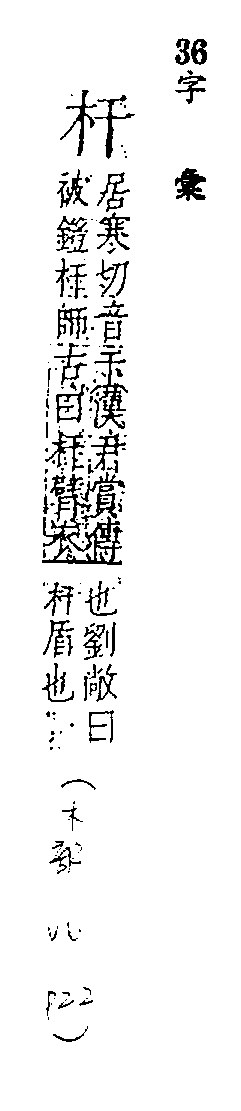 36字彙
杆
居寒切音干漢君賞傳
被鎧杆師古曰杆臂衣
也劉敞曰
杆盾也
(木部 P22)